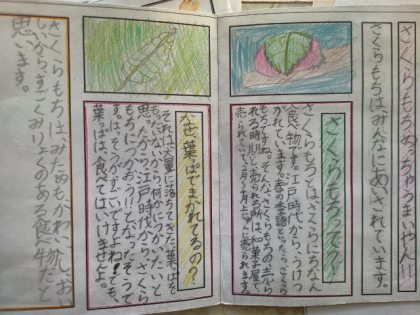 さくらもちめっちゃうまいやん!!
さくらもちは、みんなにあいされています。
さくらもちって?
さくらもちとは、さくらにちなんだ
食べ物です。江戸時代から、うけつ
がれています。春の季語と
もちですよね。そんな、さくらもちの売ら
れる時期と売られる所は、和菓子屋で
売られていて2月〜4月上じゅんに売られます。
なぜ葉っぱでまかれてるの?
それは大量に落ちてきた葉っぱを
もったいないから何かにつかいたいと
思ったから江戸時代から、さくら
もちにつかおう!!となったそうで
す。はっそうがすごいですよね!でも、
葉っぱは、食べてはいけませんよ。
さくらもちは、みためもかわいいし、おい
しいからすごくみりょくのある食べ物だと
思います。